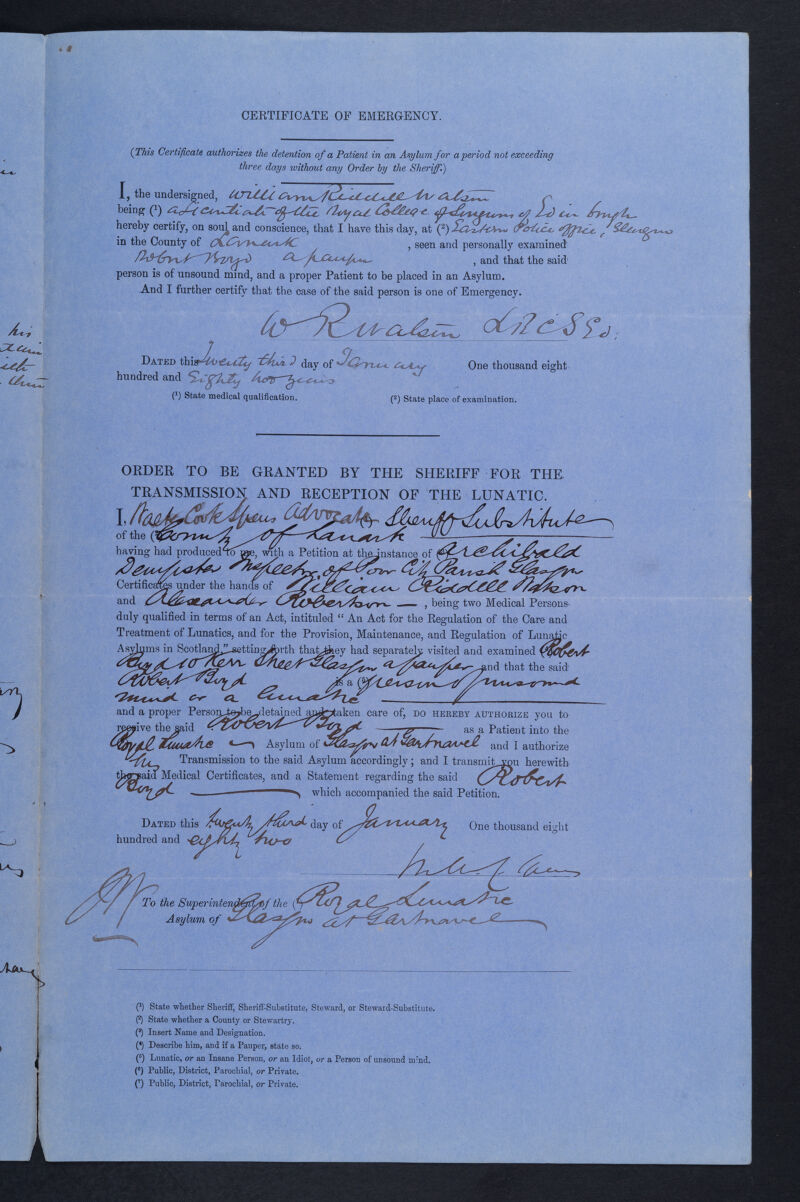 CERTIFICATE OF EMERGENCY.
(This Certificate authorizes the detention of a Patient in an Asylum for a period not exceeding
three days without any Order by the Sheriff.)
I, the undersigned, William Riddell Watson
being (¹) a Licentiate of the Royal College of Surgeons of Edinburgh
hereby certify, on soul and conscience, that I have this day, at (²) Eastern Police Office, Glasgow
in the County of Lanark , seen and personally examined
Robert Boyd a pauper , and that the said
person is of unsound mind, and a proper Patient to be placed in an Asylum.
And I further certify that the case of the said person is one of Emergency.
W R Watson L R C S Ed.
DATED this twenty third day of January One thousand eight
hundred and Eighty two years
(¹) State medical qualification. (²) State place of examination.
ORDER TO BE GRANTED BY THE SHERIFF FOR THE
TRANSMISSION AND RECEPTION OF THE LUNATIC.
I, Walter Cook Spens Advocate Sheriff Substitute
of the County of Lanark
having had produced to me, with a Petition at the instance of Archibald
Dempster Inspector of Poor City Parish Glasgow
Certificates under the hands of William Riddell Watson
and Alexander Robertson — , being two Medical Persons
duly qualified in terms of an Act, intituled “ An Act for the Regulation of the Care and
Treatment of Lunatics, and for the Provision, Maintenance, and Regulation of Lunatic
Asylums in Scotland,” setting forth that they had separately visited and examined Robert
Boyd 10 Kerr Street Glasgow a pauper and that the said
Robert Boyd is a person of unsound
mind or a lunatic
and a proper Person to be detained and taken care of, DO HEREBY AUTHORIZE you to
receive the said Robert Boyd as a Patient into the
Royal Lunatic Asylum of Glasgow at Gartnavel and I authorize
his Transmission to the said Asylum accordingly; and I transmit you herewith
the said Medical Certificates, and a Statement regarding the said Robert
Boyd which accompanied the said Petition.
DATED this twenty third day of January One thousand eight
hundred and eighty two
To the Superintendent of the Royal Lunatic
Asylum of Glasgow at Gartnavel
(¹) State whether Sheriff, Sheriff-Substitute, Steward, or Steward-Substitute.
(²) State whether a County or Stewartry.
(³) Insert Name and Designation.
(⁴) Describe him, and if a Pauper, state so.
(⁵) Lunatic, or an Insane Person, or an Idiot, or a Person of unsound mind.
(⁶) Public, District, Parochial, or Private.
(⁷) Public, District, Parochial, or Private.